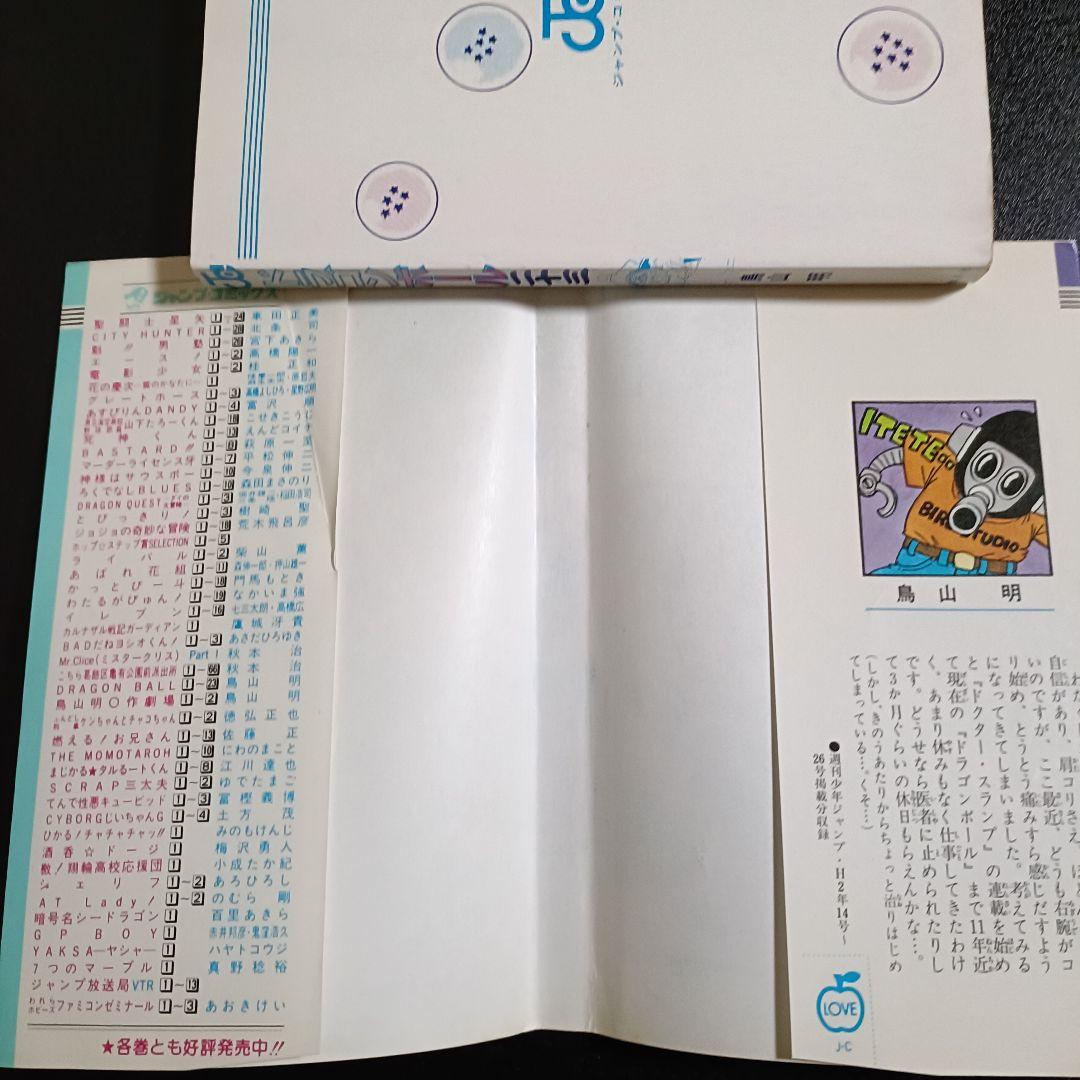 ジャンプ・コ
ジャンプコミックス
聖闘士星矢 1～24 車田正美
CITY HUNTER 1～26 北条司
魁!!男塾 1～26 宮下あきら
エース! 1～2 高橋陽一
電影少女 1～2 桂正和
花の慶次―雲のかなたに― 1
グレートホース 1～3
あすぴりんDANDY 1～4 富沢順
山下たろーくん 1～16 こせきこうじ
死神くん 1～13 えんどコイチ
BASTARD!! 萩原一至
マーダーライセンス牙 1～7 平松伸二
神様はサウスポー 1～10 今泉伸二
ろくでなしBLUES 1～10 森田まさのり
DRAGON QUEST 1～3
とびっきり! 1～3 樹崎聖
ジョジョの奇妙な冒険 1～18 荒木飛呂彦
ホップ☆ステップ賞SELECTION 1～5
ライバル 1～2 柴山薫
あばれ花組 1～11
かっとび一斗 1～18 門馬もとき
わたるがぴゅん! 1～19 なかいま強
イレブン 1～16 七三太朗・高橋広
カルナザル戦記ガーディアン 1 鷹城冴貴
BADだねヨシオくん! 1～3 あさだひろゆき
Mr.Clice(ミスタークリス) Part 1 秋本治
こちら葛飾区亀有公園前派出所 1～66 秋本治
DRAGON BALL 1～23 鳥山明
鳥山明○作劇場 1～2 鳥山明
ケンちゃんとチャコちゃん 1～2 徳弘正也
燃える!お兄さん 1～13 佐藤正
THE MOMOTAROH 1～10 にわのまこと
まじかる★タルるートくん 1～8 江川達也
SCRAP三太夫 1～2 ゆでたまご
てんで性悪キューピッド 1～3 冨樫義博
CYBORGじいちゃんG 1～4 土方茂
ひかる!チャチャチャッ!! 1 みのもけんじ
酒呑☆ドージ 1 梅沢勇人
撤!翔輪高校応援団 1 小成たか紀
シェリフ 1～2 あろひろし
AT Lady! 1～2 のむら剛
暗号名シードラゴン 1 百里あきら
GP BOY 1 赤井邦彦・鬼窪浩久
YAKSA―ヤシャ― 1 ハヤトコウジ
7つのマーブル 1 真野稔裕
ジャンプ放送局VTR 1～13
ファミコンゼミナール 1～3 あおきけい
★各巻とも好評発売中!!
ITETE
BIRD STUDIO
鳥山明
自信があり、肩コリさえ
いのですが、ここ最近、どうも右腕がコ
り始め、とうとう痛みすら感じだすよう
になってきてしまいました。考えてみる
と『ドクター・スランプ』の連載を始め
て現在の『ドラゴンボール』まで11年近
く、あまり休みもなく仕事してきたわけ
です。どうせなら医者に止められたりし
て3か月ぐらいの休日もらえんかな…。
(しかし、きのうあたりからちょっと治りはじめ
てしまっている…。くそ…。)
●週刊少年ジャンプ・H2年14号～
26号掲載分収録
LOVE
J・C